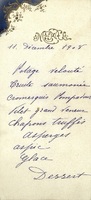 11 Décembre 1908
Potage velouté
Truite saumonée
Cromesquis Pompadour
Filet grand Veneur
Chapons truffés
asperges
aspic
Glace
Dessert